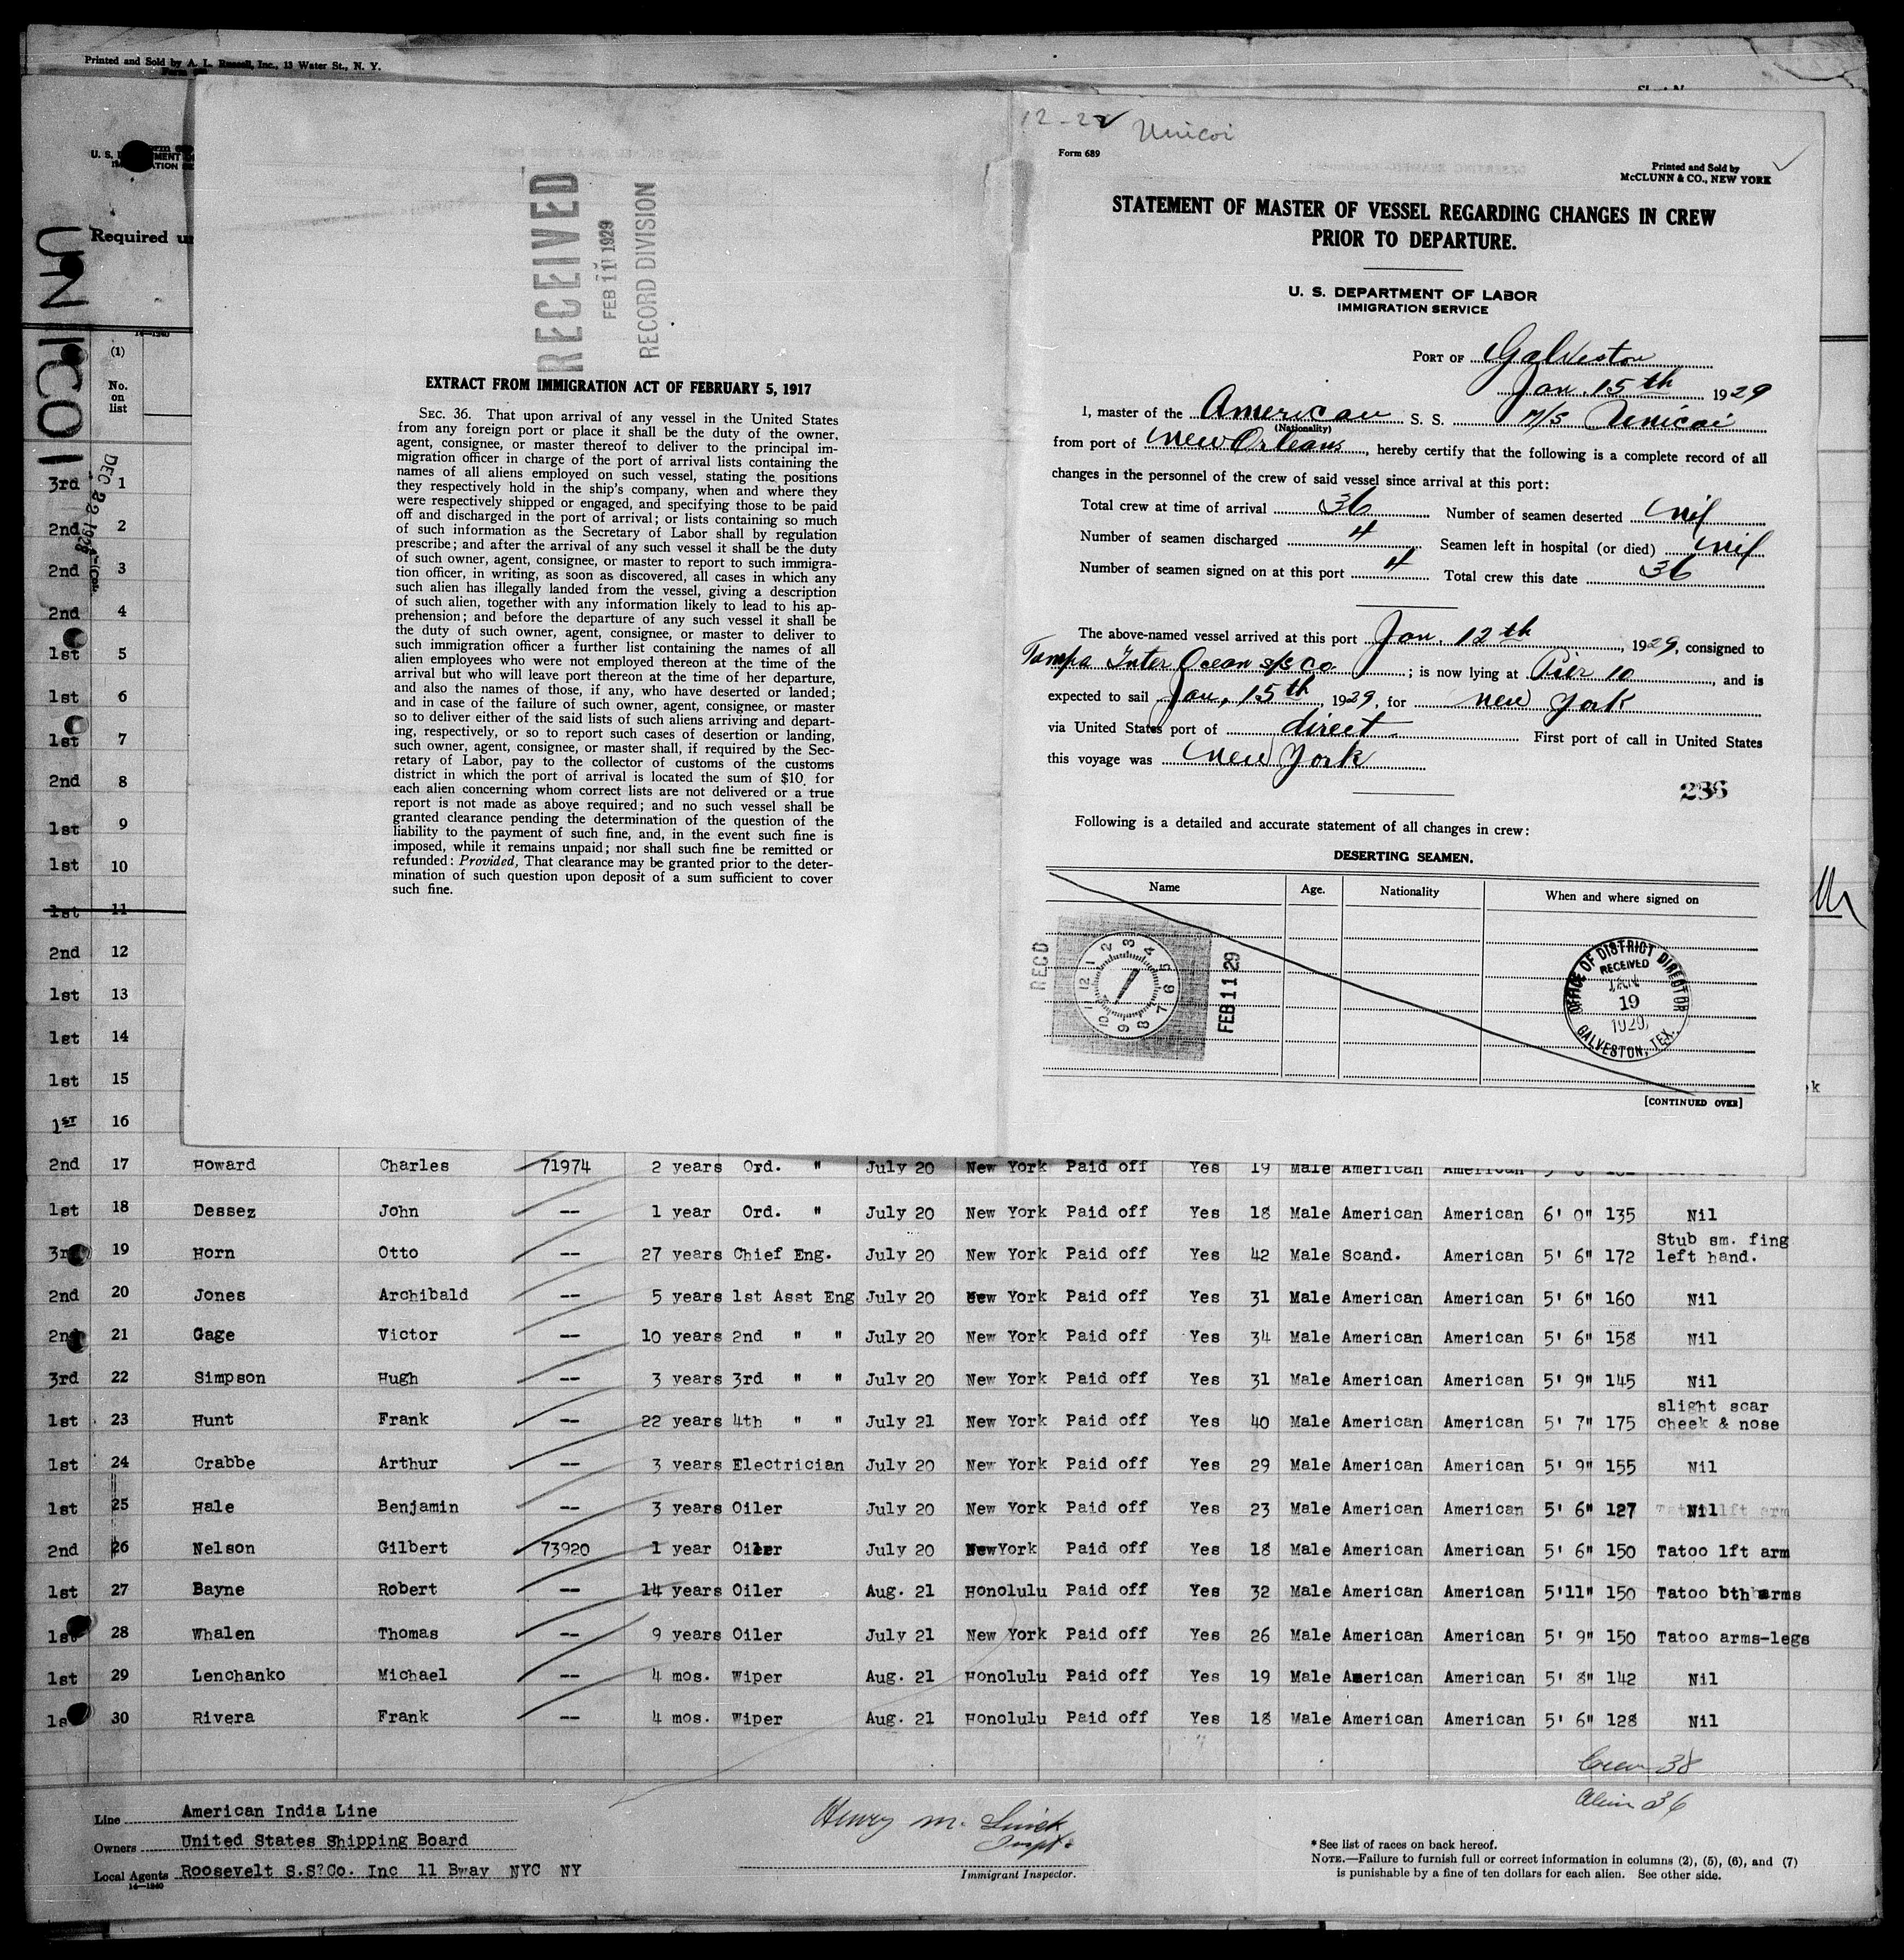 Printed and Sold by A. L. Russell, Inc., 13 Water St., N. Y.
UNICOI
Required
14—1240
(1)
No.
on
list
DEC 22 1928
3rd 1
2nd 2
2nd 3
2nd 4
1st 5
1st 6
1st 7
2nd 8
1st 9
1st 10
1st 11
2nd 12
1st 13
1st 14
1st 15
1st 16
RECEIVED
FEB 11 1929
RECORD DIVISION
EXTRACT FROM IMMIGRATION ACT OF FEBRUARY 5, 1917
SEC. 36. That upon arrival of any vessel in the United States
from any foreign port or place it shall be the duty of the owner,
agent, consignee, or master thereof to deliver to the principal im-
migration officer in charge of the port of arrival lists containing the
names of all aliens employed on such vessel, stating the positions
they respectively hold in the ship's company, when and where they
were respectively shipped or engaged, and specifying those to be paid
off and discharged in the port of arrival; or lists containing so much
of such information as the Secretary of Labor shall by regulation
prescribe; and after the arrival of any such vessel it shall be the duty
of such owner, agent, consignee, or master to report to such immigra-
tion officer, in writing, as soon as discovered, all cases in which any
such alien has illegally landed from the vessel, giving a description
of such alien, together with any information likely to lead to his ap-
prehension; and before the departure of any such vessel it shall be
the duty of such owner, agent, consignee, or master to deliver to
such immigration officer a further list containing the names of all
alien employees who were not employed thereon at the time of the
arrival but who will leave port thereon at the time of her departure,
and also the names of those, if any, who have deserted or landed;
and in case of the failure of such owner, agent, consignee, or master
so to deliver either of the said lists of such aliens arriving and depart-
ing, respectively, or so to report such cases of desertion or landing,
such owner, agent, consignee, or master shall, if required by the Sec-
retary of Labor, pay to the collector of customs of the customs
district in which the port of arrival is located the sum of $10 for
each alien concerning whom correct lists are not delivered or a true
report is not made as above required; and no such vessel shall be
granted clearance pending the determination of the question of the
liability to the payment of such fine, and, in the event such fine is
imposed, while it remains unpaid; nor shall such fine be remitted or
refunded: Provided, That clearance may be granted prior to the deter-
mination of such question upon deposit of a sum sufficient to cover
such fine.
12-22 Unicoi
Form 689
Printed and Sold by
McCLUNN & CO., NEW YORK
STATEMENT OF MASTER OF VESSEL REGARDING CHANGES IN CREW
PRIOR TO DEPARTURE.
U. S. DEPARTMENT OF LABOR
IMMIGRATION SERVICE
PORT OF Galveston
Jan 15th 1929
I, master of the American S. S. M/S Unicoi
(Nationality)
from port of New Orleans, hereby certify that the following is a complete record of all
changes in the personnel of the crew of said vessel since arrival at this port:
Total crew at time of arrival 36 Number of seamen deserted nil
Number of seamen discharged 4 Seamen left in hospital (or died) nil
Number of seamen signed on at this port 4 Total crew this date 36
The above-named vessel arrived at this port Jan. 12th, 1929, consigned to
Tampa Inter Ocean S/S Co.; is now lying at Pier 10, and is
expected to sail Jan, 15th, 1929, for New York
via United States port of direct First port of call in United States
this voyage was New York
236
Following is a detailed and accurate statement of all changes in crew:
DESERTING SEAMEN.
Name Age. Nationality When and where signed on
RECD
FEB 11 29
OFFICE OF DISTRICT DIRECTOR
RECEIVED
JAN
19
1929
GALVESTON, TEX.
[CONTINUED OVER]
2nd 17 Howard Charles 71974 2 years Ord. " July 20 New York Paid off Yes 19 Male American American
1st 18 Dessez John -- 1 year Ord. " July 20 New York Paid off Yes 18 Male American American 6' 0" 135 Nil
3rd 19 Horn Otto -- 27 years Chief Eng. July 20 New York Paid off Yes 42 Male Scand. American 5' 6" 172 Stub sm. fing
left hand.
2nd 20 Jones Archibald -- 5 years 1st Asst Eng July 20 New York Paid off Yes 31 Male American American 5' 6" 160 Nil
2nd 21 Gage Victor -- 10 years 2nd " " July 20 New York Paid off Yes 34 Male American American 5' 6" 158 Nil
3rd 22 Simpson Hugh -- 3 years 3rd " " July 20 New York Paid off Yes 31 Male American American 5' 9" 145 Nil
1st 23 Hunt Frank -- 22 years 4th " " July 21 New York Paid off Yes 40 Male American American 5' 7" 175 slight scar
cheek & nose
1st 24 Crabbe Arthur -- 3 years Electrician July 20 New York Paid off Yes 29 Male American American 5' 9" 155 Nil
1st 25 Hale Benjamin -- 3 years Oiler July 20 New York Paid off Yes 23 Male American American 5' 6" 127 Nil
2nd 26 Nelson Gilbert 73920 1 year Oiler July 20 New York Paid off Yes 18 Male American American 5' 6" 150 Tatoo lft arm
1st 27 Bayne Robert -- 14 years Oiler Aug. 21 Honolulu Paid off Yes 32 Male American American 5'11" 150 Tatoo bth arms
1st 28 Whalen Thomas -- 9 years Oiler July 21 New York Paid off Yes 26 Male American American 5' 9" 150 Tatoo arms-legs
1st 29 Lenchanko Michael -- 4 mos. Wiper Aug. 21 Honolulu Paid off Yes 19 Male American American 5' 8" 142 Nil
1st 30 Rivera Frank -- 4 mos. Wiper Aug. 21 Honolulu Paid off Yes 18 Male American American 5' 6" 128 Nil
Crew 38
Alien 36
Line American India Line
Owners United States Shipping Board
Local Agents Roosevelt S.S?Co. Inc 11 Bway NYC NY
14—1240
Henry M.
Inspt.
Immigrant Inspector.
*See list of races on back hereof.
NOTE.—Failure to furnish full or correct information in columns (2), (5), (6), and (7)
is punishable by a fine of ten dollars for each alien. See other side.